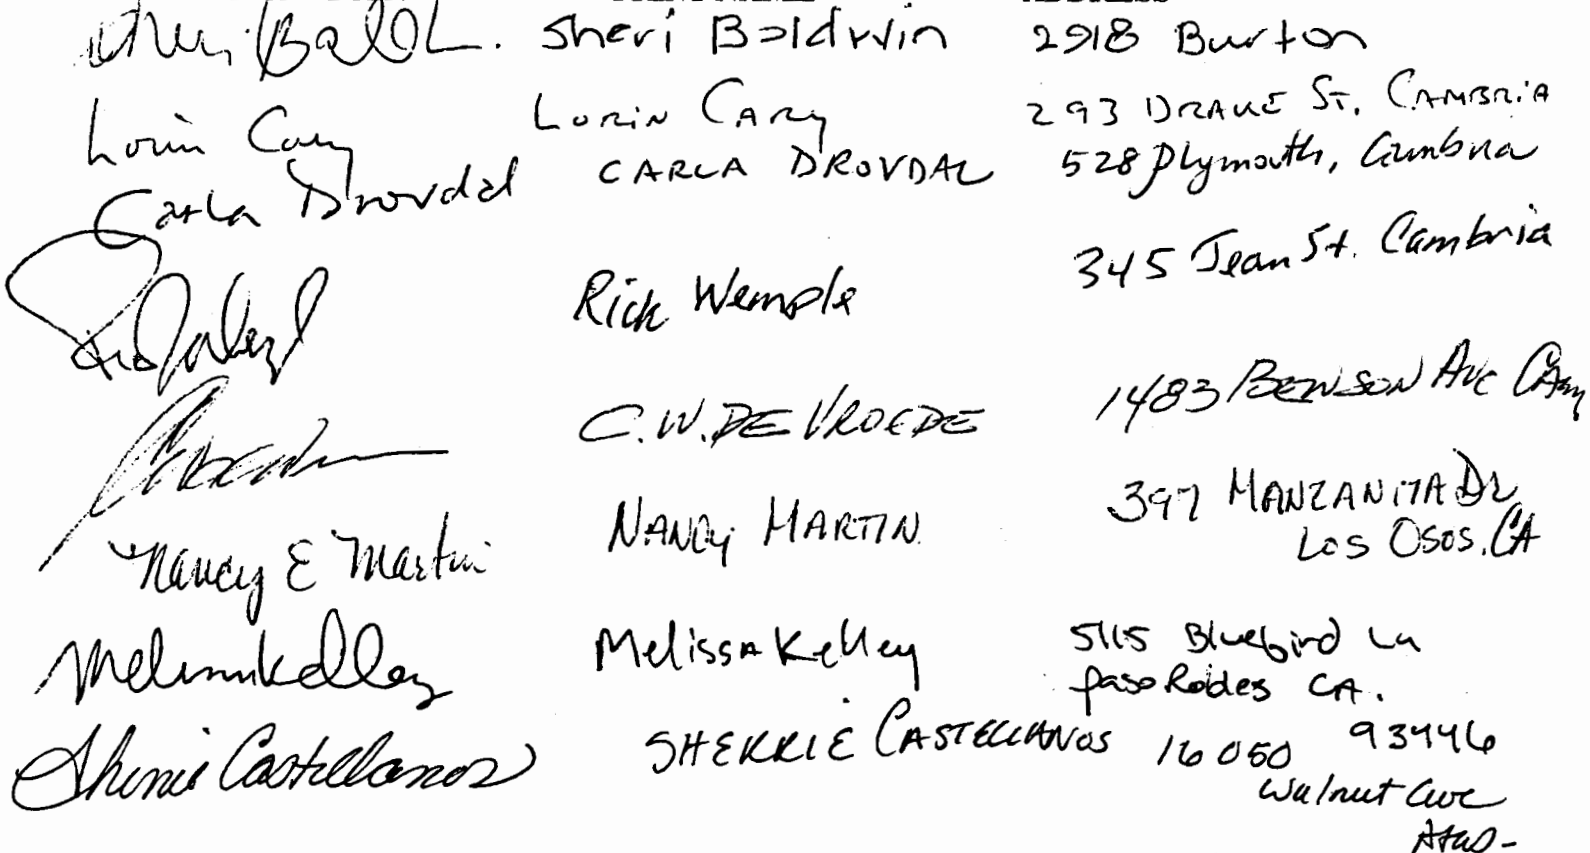 Sheri Baldwin 2918 Burton
Lorin Cary LORIN CARY 293 DRAKE ST. CAMBRIA
Carla Drovdal CARLA DROVDAL 528 Plymouth, Cambria
Rick Wemple 345 Jean St. Cambria
C.W. DE VROEDE 1483 BENSON AVE CAM
Nancy E Martin NANCY MARTIN 397 MANZANITA DR
LOS OSOS, CA
Melissa Kelley Melissa Kelley 5115 Bluebird Ln
paso Robles CA.
93446
Sherrie Castellanos SHERRIE CASTELLANOS 16050
Walnut Ave
Atas-